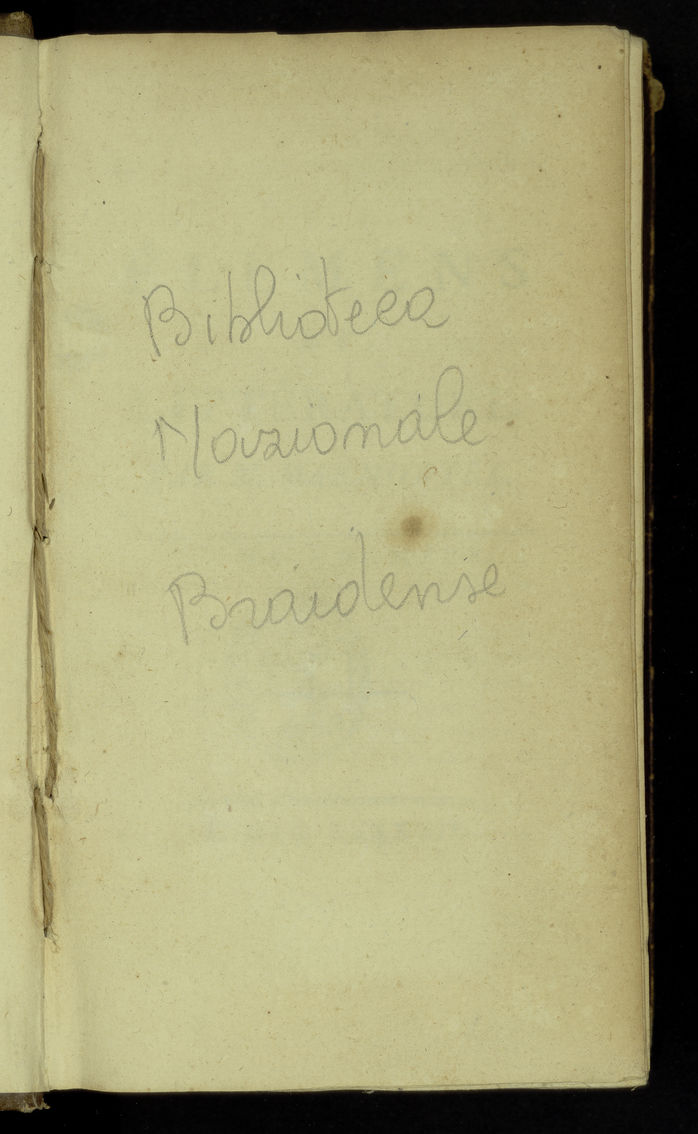 Biblioteca
Nazionale
Braidense